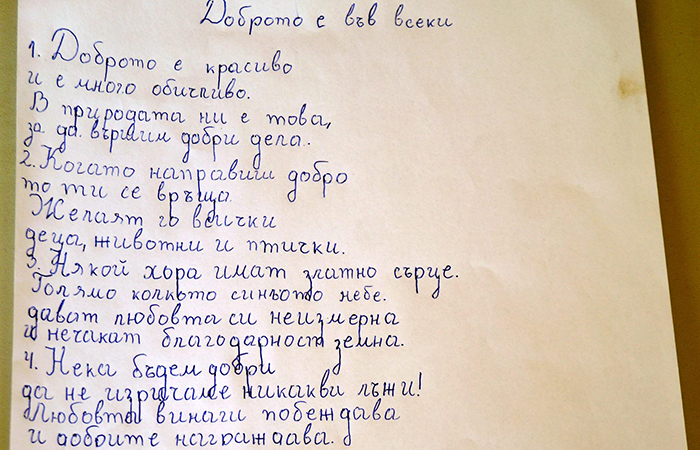 Доброто е във всеки
1. Доброто е красиво
и е много обичливо.
В природата ни е това,
за да вършим добри дела.
2. Когато направиш добро
то ти се връща.
Желаят го всички
деца, животни и птички.
3. Някой хора имат златно сърце.
Голямо колкото синьото небе.
дават любовта си неизмерна
и нечакат благодарност земна.
4. Нека бъдем добри
да не изричаме никакви лъжи!
Любовта винаги побеждава
и добрите награждава.